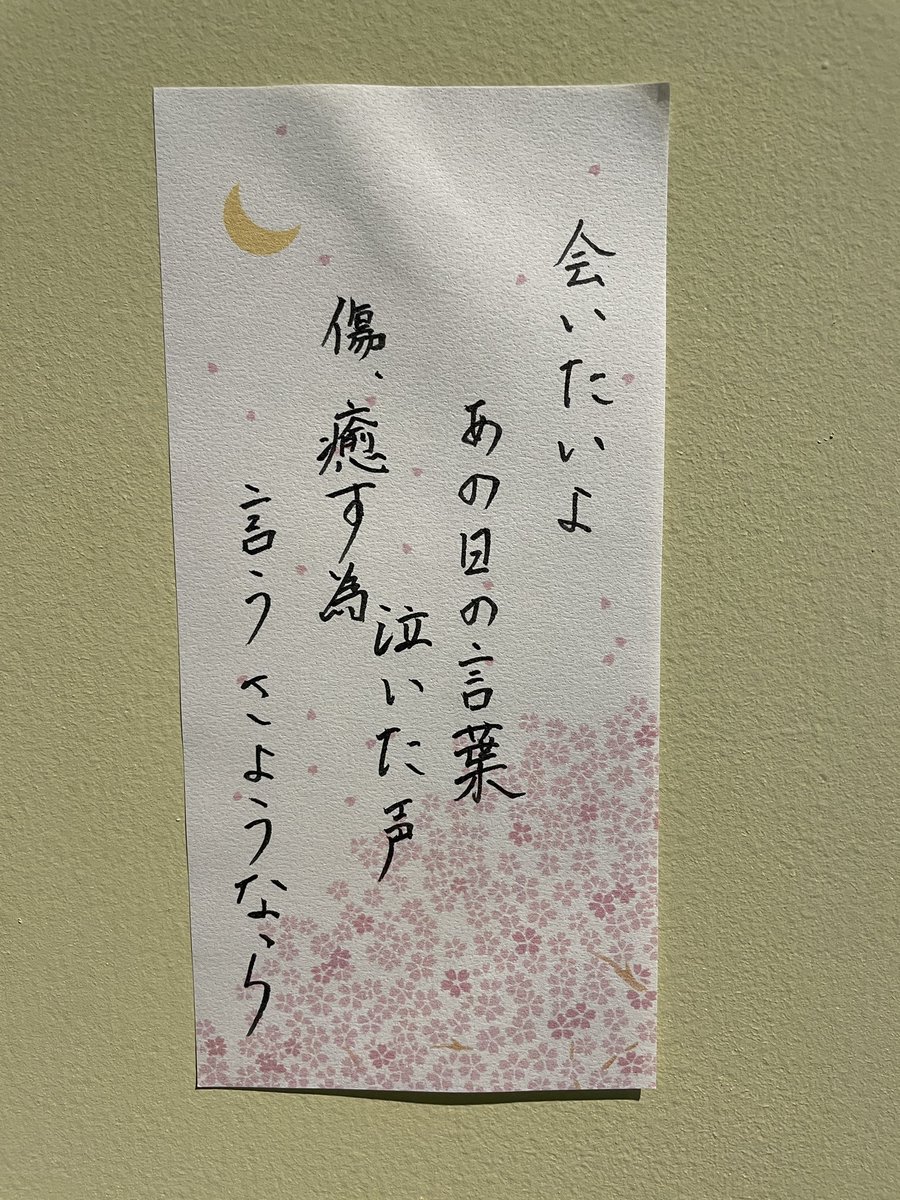 会いたいよ
あの日の言葉
泣いた声
傷、癒す為
言うさようなら